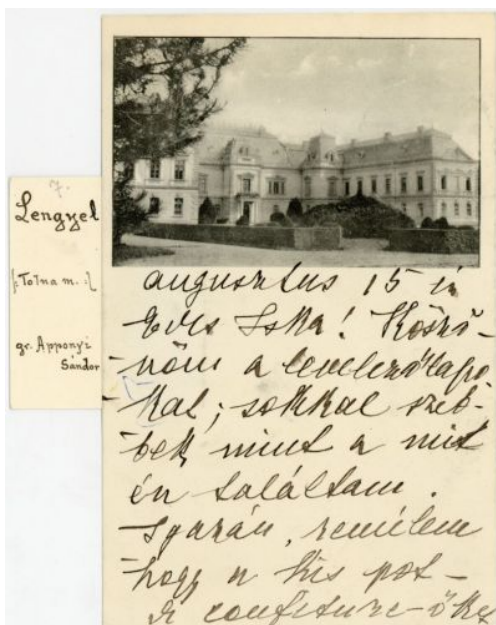 7.
Lengyel
[: Tolna m. :]
gr. Apponyi
Sándor
augusztus 15 én
Édes Iska! Köszö-
nöm a levelezőlapo-
kat; sokkal szeb-
bek, mint a mit
én találtam.
Igazán, remélem
hogy a kis pot-
à confiture-öket